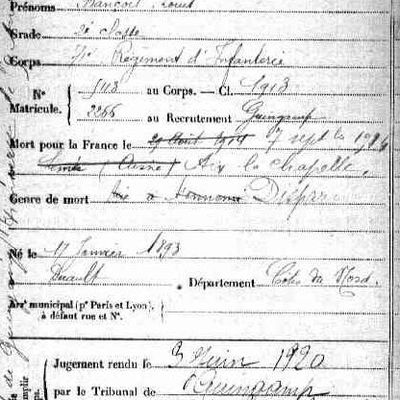 Prénoms François Louis
Grade 2e Classe
Corps 71e Régiment d'Infanterie
N° 5113 au Corps. — Cl. 1913
Matricule. 2266 au Recrutement Guingamp
Mort pour la France le 29 Août 1914 7 septbre 1914
(Aisne) Aix la Chapelle,
Genre de mort Disparu
Né le 17 Janvier 1893
Duault Département Côtes du Nord.
Arrt municipal (pr Paris et Lyon),
à défaut rue et N°.
Jugement rendu le 3 Juin 1920
par le Tribunal de Guingamp